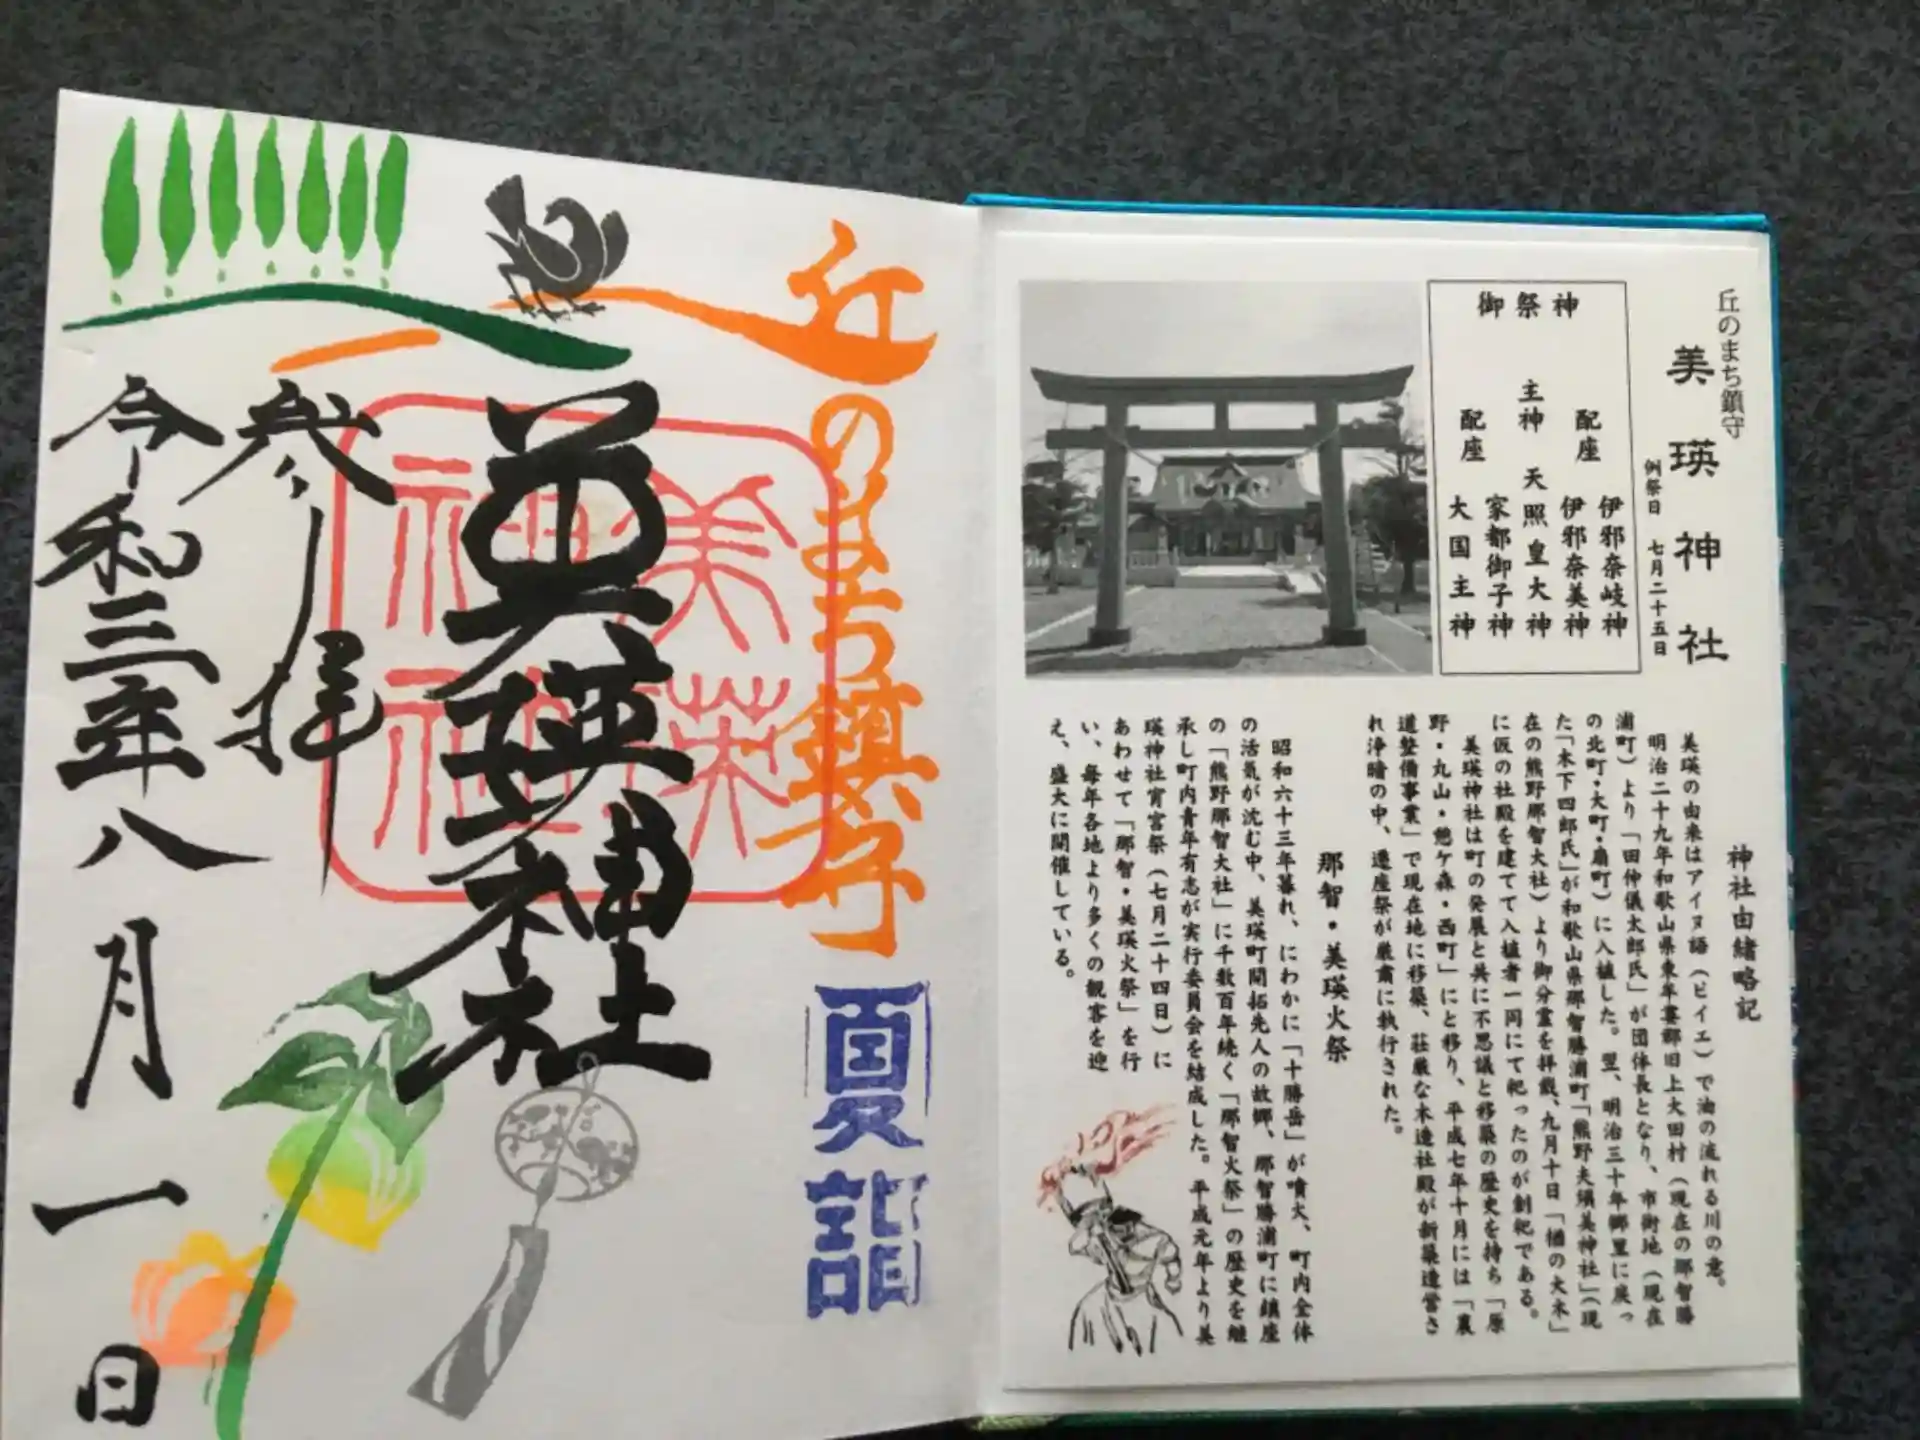 丘のまち鎮守
夏詣
美瑛神社
参拝
令和三年八月一日
丘のまち鎮守
美瑛神社
例祭日 七月二十五日
御祭神
配座 伊邪奈岐神
伊邪奈美神
主神 天照皇大神
家都御子神
配座 大国主神
神社由緒略記
美瑛の由来はアイヌ語(ピイエ)で油の流れる川の意。
明治二十九年和歌山県東牟婁郡旧上大田村(現在の那智勝
浦町)より「田仲儀太郎氏」が団体長となり、市街地(現在
の北町・大町・扇町)に入植した。翌、明治三十年郷里に戻っ
た「木下四郎氏」が和歌山県那智勝浦町「熊野夫須美神社」(現
在の熊野那智大社)より御分霊を拝戴、九月十日「楢の大木」
に仮の社殿を建てて入植者一同にて祀ったのが創祀である。
美瑛神社は町の発展と共に不思議と移築の歴史を持ち「原
野・丸山・憩ケ森・西町」にと移り、平成七年十月には「裏
道整備事業」で現在地に移築、荘厳な木造社殿が新築造営さ
れ浄暗の中、遷座祭が厳粛に執行された。
那智・美瑛火祭
昭和六十三年暮れ、にわかに「十勝岳」が噴火、町内全体
の活気が沈む中、美瑛町開拓先人の故郷、那智勝浦町に鎮座
の「熊野那智大社」に千数百年続く「那智火祭」の歴史を継
承し町内青年有志が実行委員会を結成した。平成元年より美
瑛神社宵宮祭(七月二十四日)に
あわせて「那智・美瑛火祭」を行
い、毎年各地より多くの観客を迎
え、盛大に開催している。